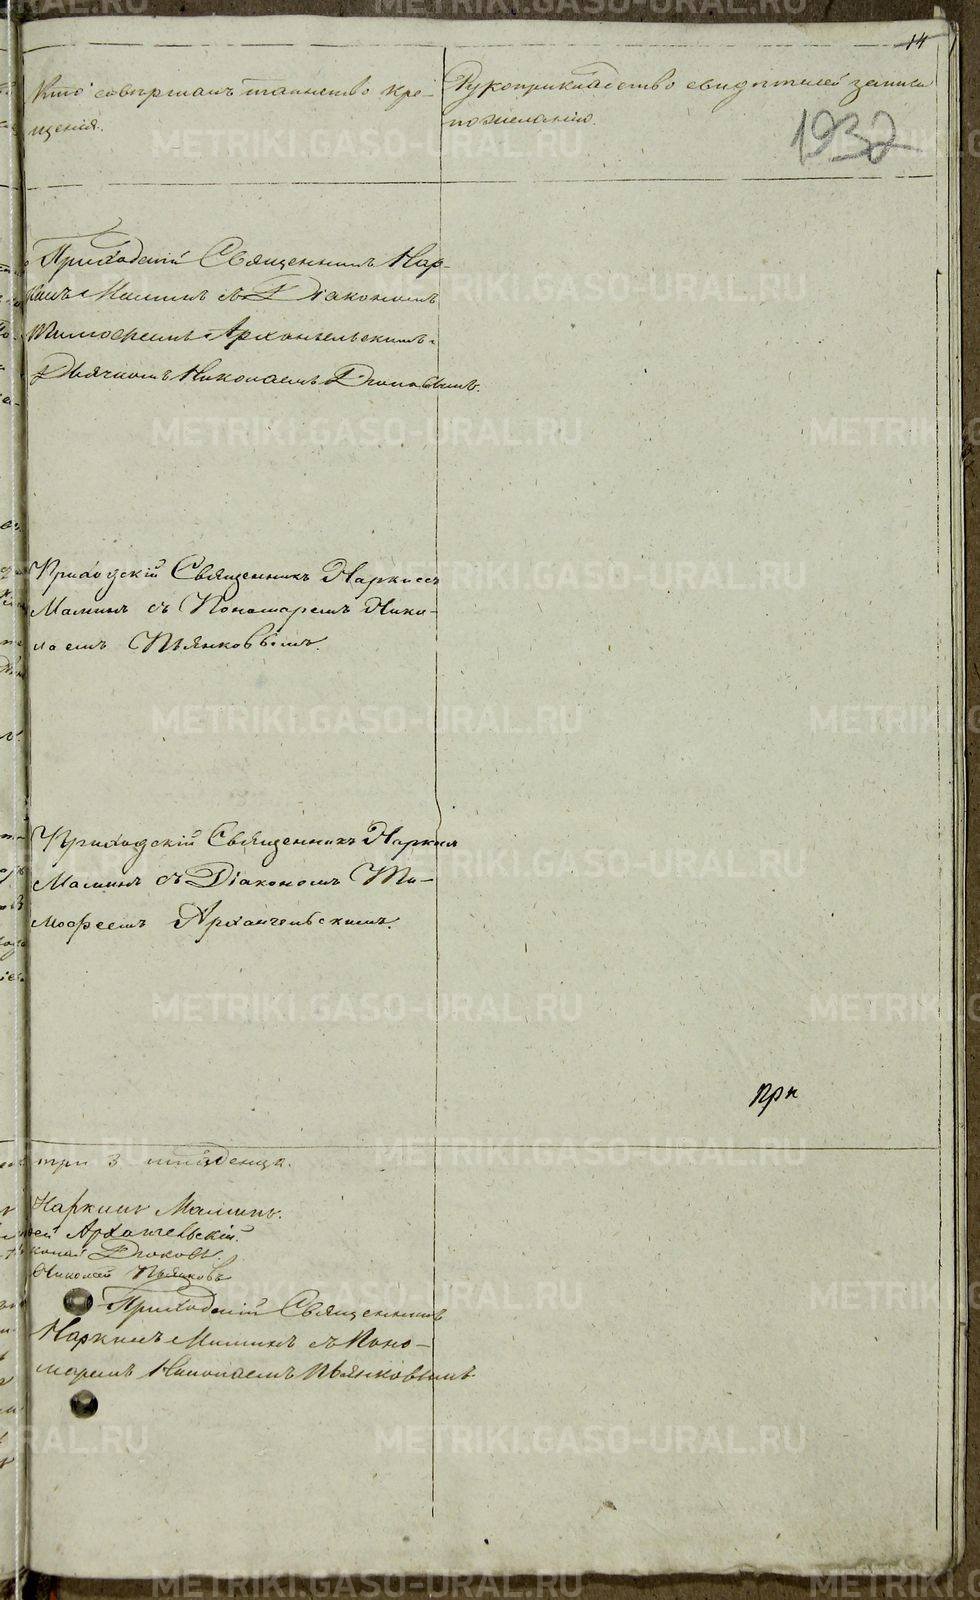 14
Кто совершалъ таинство кре-
щенія.
Рукоприкладство свидѣтелей записи
по желанію.
1932
Приходскій Священникъ Нар-
кисъ Маминъ съ Діакономъ
Тимофеемъ Архангельскимъ
Дьячкомъ Николаемъ
Приходскій Священникъ Наркисъ
Маминъ съ Пономаремъ Нико-
лаемъ Пьянковымъ.
Приходскій Священникъ Наркисъ
Маминъ съ Діакономъ Ти-
мофеемъ Архангельскимъ.
при
три 3 младенца.
Наркисъ Маминъ.
Архангельскій.
Николай Пьянковъ
Приходскій Священникъ
Наркисъ Маминъ съ Поно-
маремъ Николаемъ Пьянковымъ
METRIKI.GASO-URAL.RU